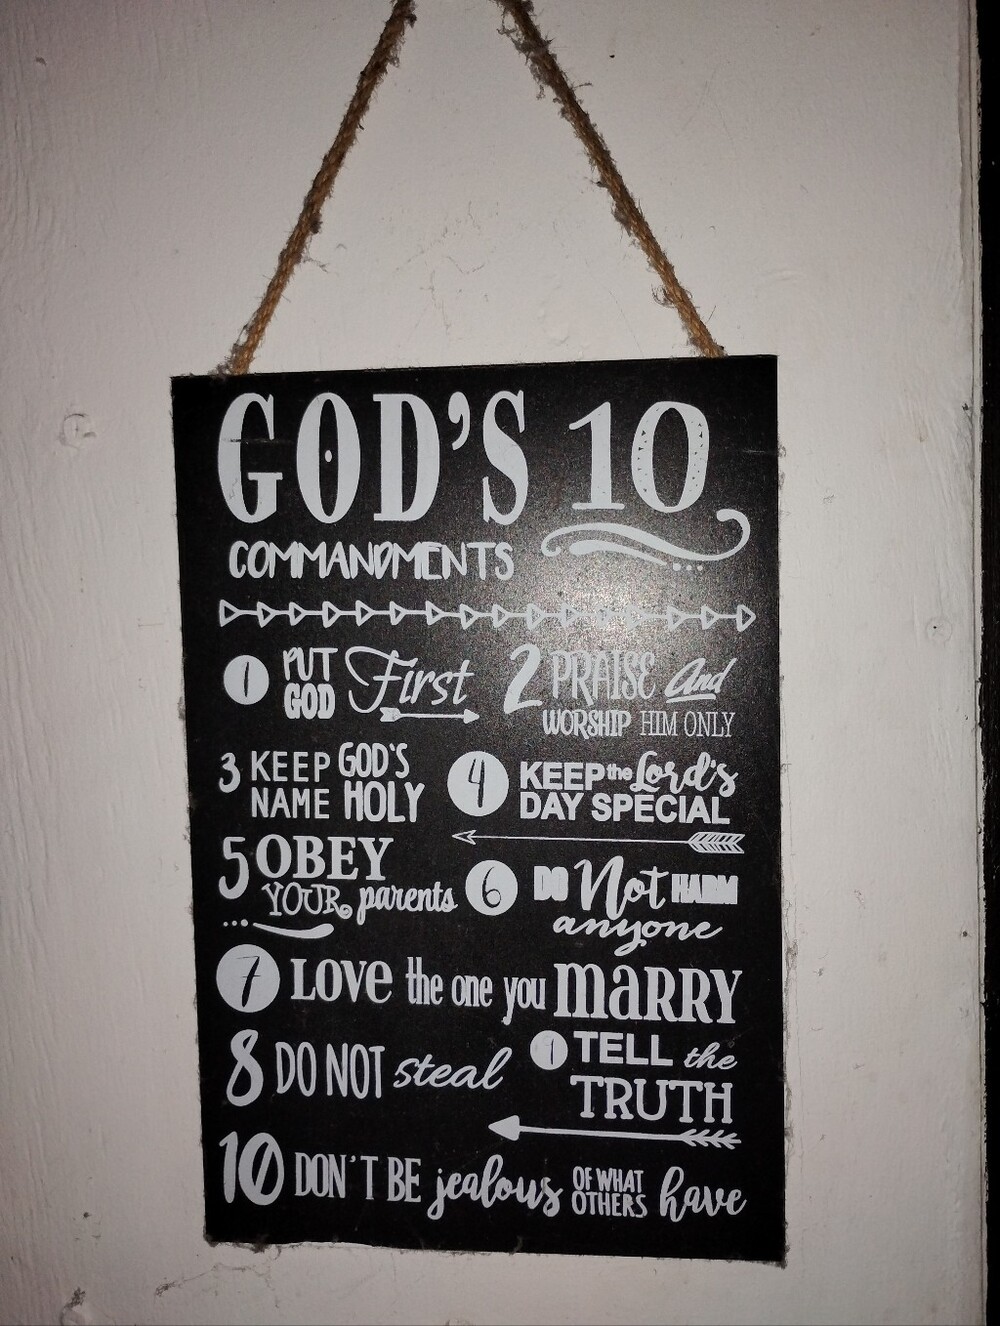 GOD'S 10
COMMANDMENTS
1 PUT GOD First
2 PRAISE And
WORSHIP HIM ONLY
3 KEEP GOD'S
NAME HOLY
4 KEEP the Lord's
DAY SPECIAL
5 OBEY
YOUR parents
6 DO Not HARM
anyone
7 LOVE the one you MARRY
8 DO NOT steal
9 TELL the
TRUTH
10 DON'T BE jealous OF WHAT OTHERS have